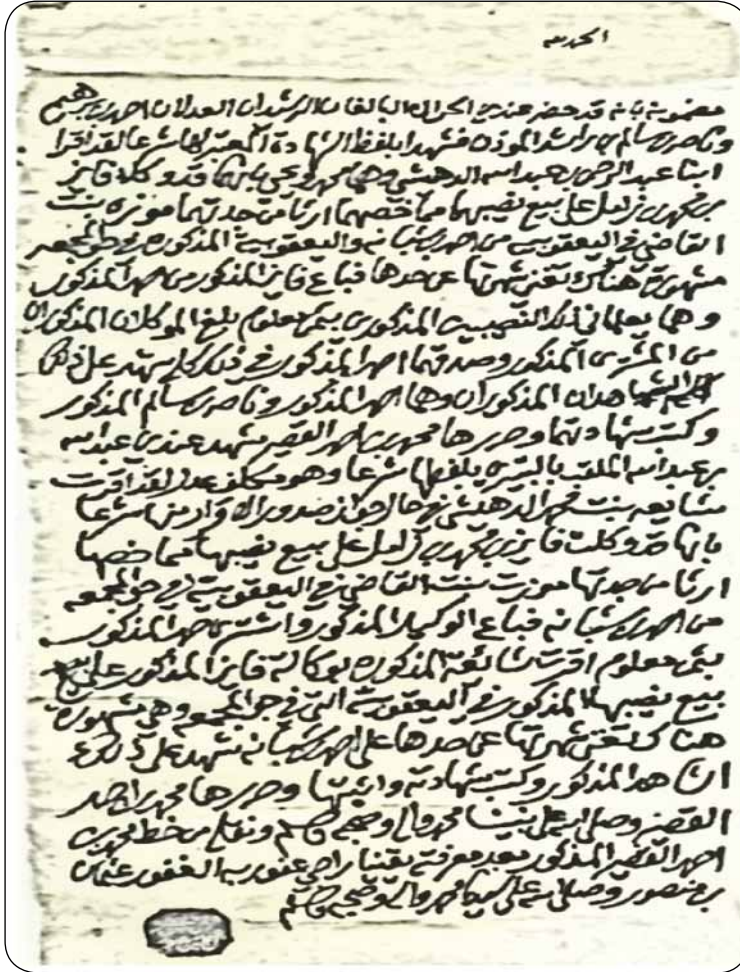 الحمد لله
مضمونه بانه قد حضر عندي الحران البالغان الرشيدان العدلان احمد بن
وناصر بن سالم بن راشد المؤذن فشهدا بلفظ الشهادة المعتبرة شرعا لقد اقرا
ابنا عبد الرحمن بن عبد الله الدهيشي وهما محمد ويحي بانهما قد وكلا فايز
بن محمد بن زامل على بيع نصيبهما مما خصهما ارثا من جدتهما موزه بنت
القاضي في اليعقوبيه من احمد بن شبانه واليعقوبية المذكورة في جو المجمعه
مشهورة هناك تغني شهرتها عن حدها فباع فايز المذكور من احمد المذكور
وهما يعلمان ذلك النصيبين المذكورين بثمن معلوم بلغ الموكلان المذكوران
من المشتري المذكور وصدقهما احمد المذكور في ذلك كله شهد على ذلك
الشاهدان المذكوران وهما احمد المذكور وناصر بن سالم المذكور
وكتب شهادتهما وحررها محمد بن احمد القصير شهد عندي عبد الله
بن عبد الله الملقب بلفظها شرعا وهو مكلف عدل لقد اقرت
شايعه بنت محمد الدهيشي في حال جواز صدور الاقرار منها شرعا
بانها قد وكلت فايز بن محمد بن زامل على بيع نصيبها مما خصها
ارثا من جدتها موزت بنت القاضي في اليعقوبية في جو المجمعه
من احمد بن شبانه فباع الوكيل المذكور واشترى احمد المذكور
بثمن معلوم اقرت شائعة المذكوره بوكالة فايز المذكور على
بيع نصيبها المذكور في اليعقوبية التي في جو المجمعه وهي مشهورة
هناك تغني شهرتها عن حدها على احمد بن شبانه شهد على ذلك
المذكور وكتب شهادته واثبتها وحررها محمد بن احمد
القصير وصلى الله على نبينا محمد واله وصحبه وسلم ونقله من خط محمد بن
احمد القصير المذكور بعد معرفته يقينا راجي عفو ربه الغفور عثمان
بن منصور وصلى الله على سيدنا محمد واله وصحبه وسلم